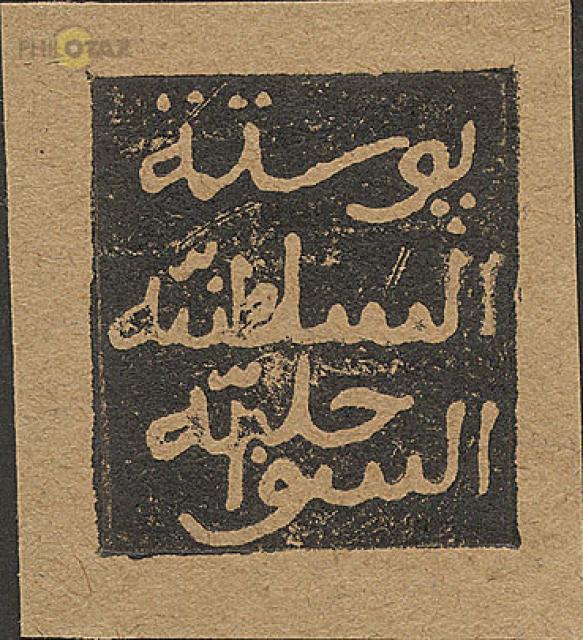 PHILOTAX
پوستة
السلطنية
السواحلية